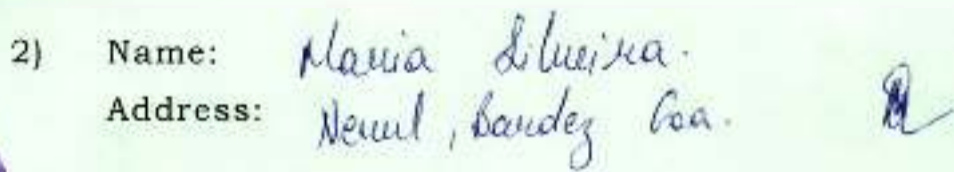 2) Name: Maria Silveira.
Address: Nerul, Bardez Goa.